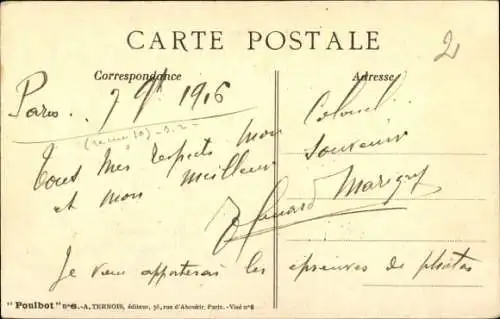 CARTE POSTALE
2
Correspondance
Adresse
Paris. 7 9 1916
Colonel.
Tous mes respects mon
et mon meilleur
souvenir
Marigny
Je vous apporterai les épreuves de photos
"Poulbot" N°6.-A. TERNOIS, éditeur, 56, rue d'Aboukir, Paris. - Visé n°6